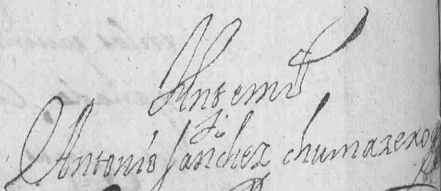 Antemi
Antonio Sanchez chumazero